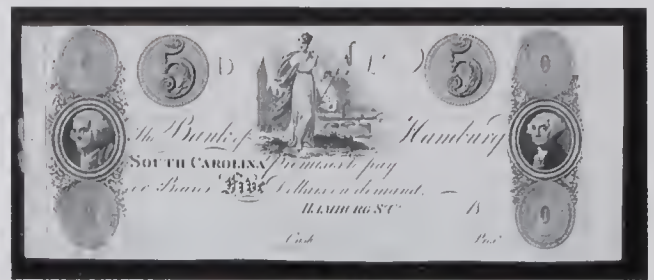 5 D L 5
The Bank of Hamburg
SOUTH CAROLINA Promises to pay
or Bearer Five Dollars on demand.
HAMBURG S.C. 18
Cash Pres